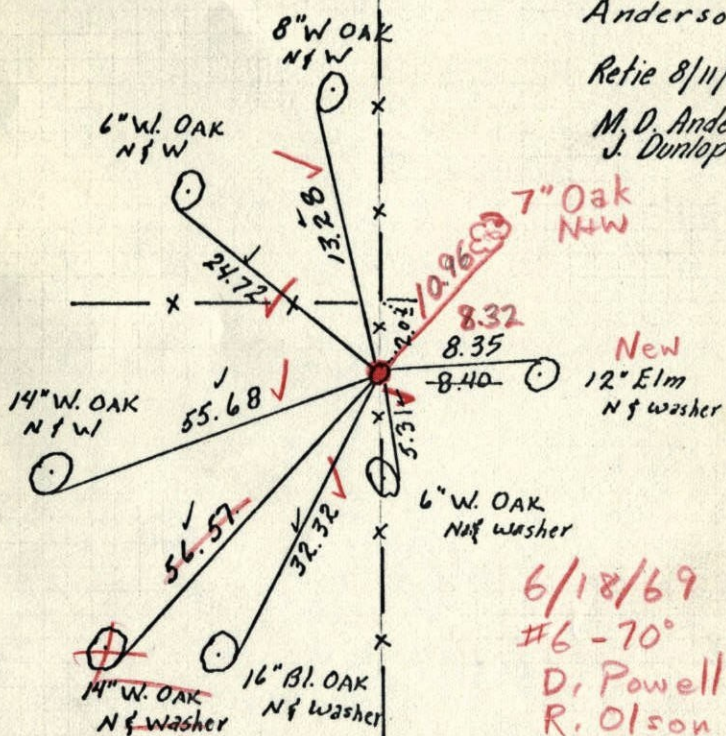 8" W. OAK
N & W
Anderso
Retie 8/11/
M. D. Ande
J. Dunlop
6" W. OAK
N & W
13.28
7" Oak
N+W
24.72
10.96
2.0±
8.32
8.35
8.40
New
12" Elm
N & Washer
14" W. OAK
N & W
55.68
5.31
6" W. OAK
N & Washer
56.57
32.32
14" W. OAK
N & Washer
16" Bl. OAK
N & Washer
6/18/69
#6 - 70°
D. Powell
R. Olson